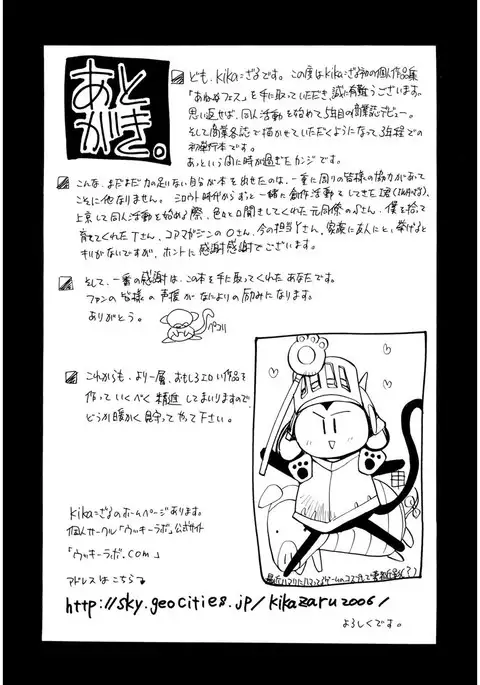 あと
がき。
ども、kikaニざるです。この度はkikaニざる初の個人作品集
を手に取っていただき、誠に有難うございます。
思い返せば、同人活動を始めて5年目の商業誌デビュー。
そして商業各誌で描かせていただくようになって3年程での
初単行本です。
あっという間に時が過ぎたカンジです。
こんな、まだまだ力の足りない自分が本を出せたのは、一重に周りの皆様の協力があって
ことに他なりません。シロウト時代からずっと一緒に創作活動をしてきたI君
上京して同人活動を始める際、色々とお聞きしてくれた元同僚のSさん、僕を拾って
育ててくれたTさん、コアマガジンのOさん、今の担当Yさん、家族に友人にと、挙げると
キリがないですが、ホントに感謝感謝でございます。
そして、一番の感謝は、この本を手に取ってくれたあなたです。
ファンの皆様の声援がなによりの励みになります。
ありがとう。
ペコリ
これからも、より一層、おもしろエロい作品を
作っていくべく精進してまいりますので
どうか暖かく見守ってやって下さい。
kikaニざるのホームページあります。
個人サークル「ウッキーラボ」公式サイト
「ウッキーラボ.com」
アドレスはこちら
http://sky.geocities.jp/kikazaru2006/
よろしくです。